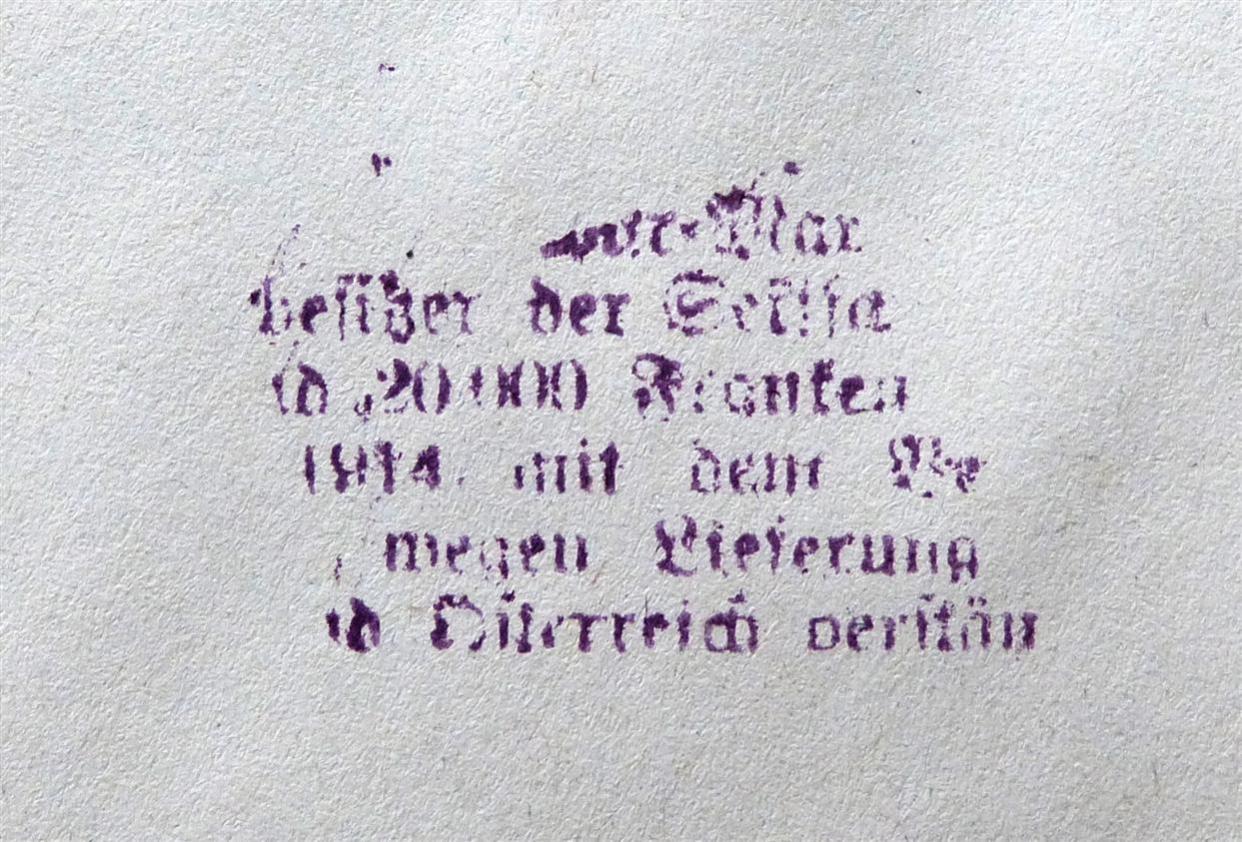 Mar
besitzer der
id 20000 Franken
1914 mit dem Be
wegen Lieferung
id Österreich verstän